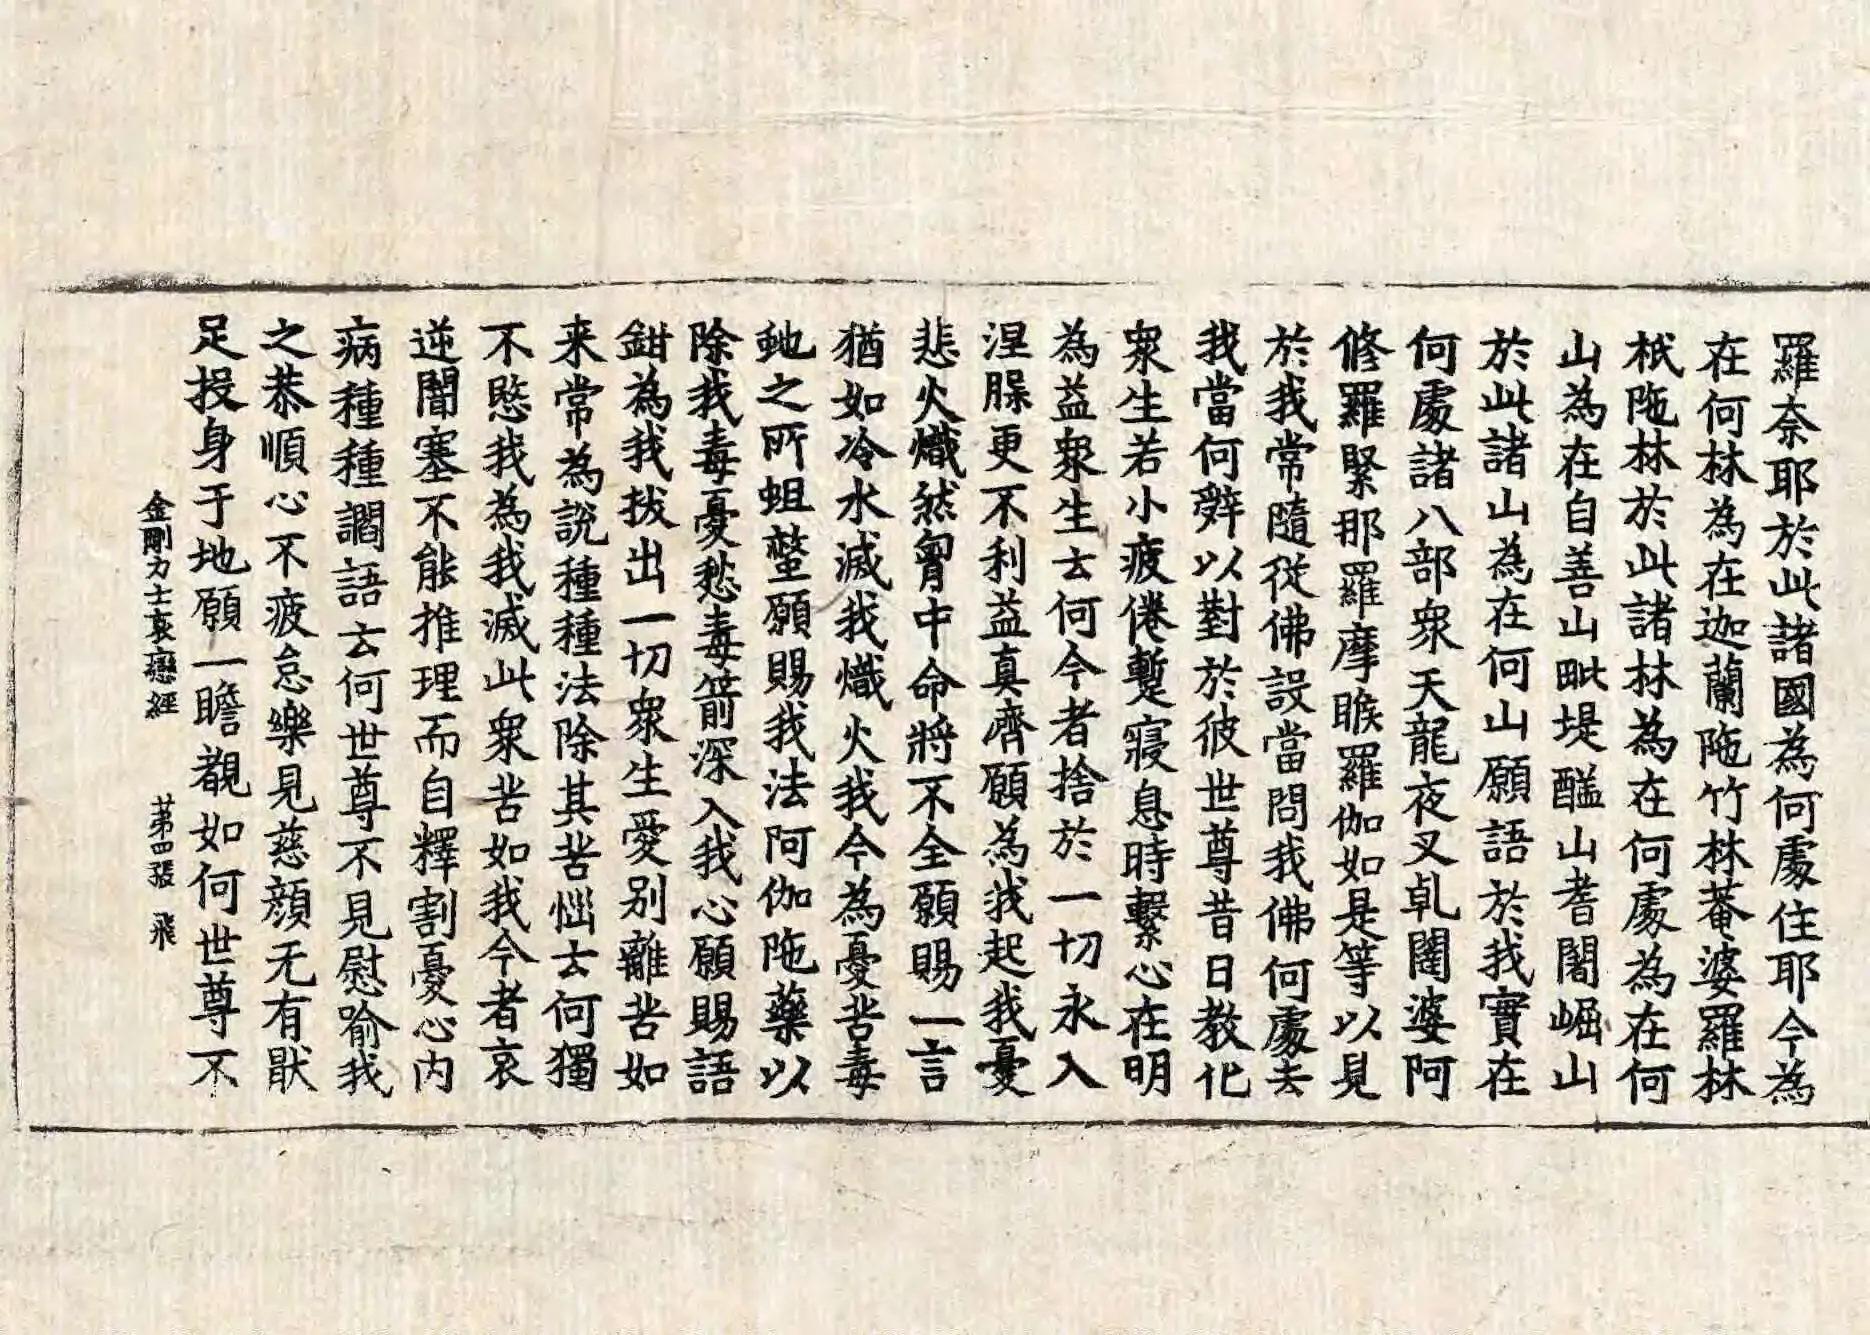 羅奈耶於此諸國為何處住耶今為
在何林為在迦蘭陁竹林菴婆羅林
祇陁林於此諸林為在何處為在何
山為在自善山毗堤醯山耆闍崛山
於此諸山為在何山願語於我實在
何處諸八部衆天龍夜叉乹闥婆阿
修羅緊那羅摩睺羅伽如是等以見
於我常隨從佛設當問我佛何處去
我當何辤以對於彼世尊昔日教化
衆生若小疲倦蹔寢息時繫心在明
為益衆生云何今者捨於一切永入
涅槃更不利益真濟願為我起我憂
悲火熾然胷中命將不全願賜一言
猶如冷水滅我熾火我今為憂苦毒
虵之所蛆螫願賜我法阿伽陁藥以
除我毒憂愁毒箭深入我心願賜語
鉗為我拔出一切衆生愛别離苦如
来常為說種種法除其苦惱云何獨
不愍我為我滅此衆苦如我今者哀
逆闇塞不能推理而自釋割憂心内
病種種讇語云何世尊不見慰喻我
之恭順心不疲怠樂見慈顔无有猒
足投身于地願一瞻覩如何世尊不
金剛力士哀戀經 苐四張 飛